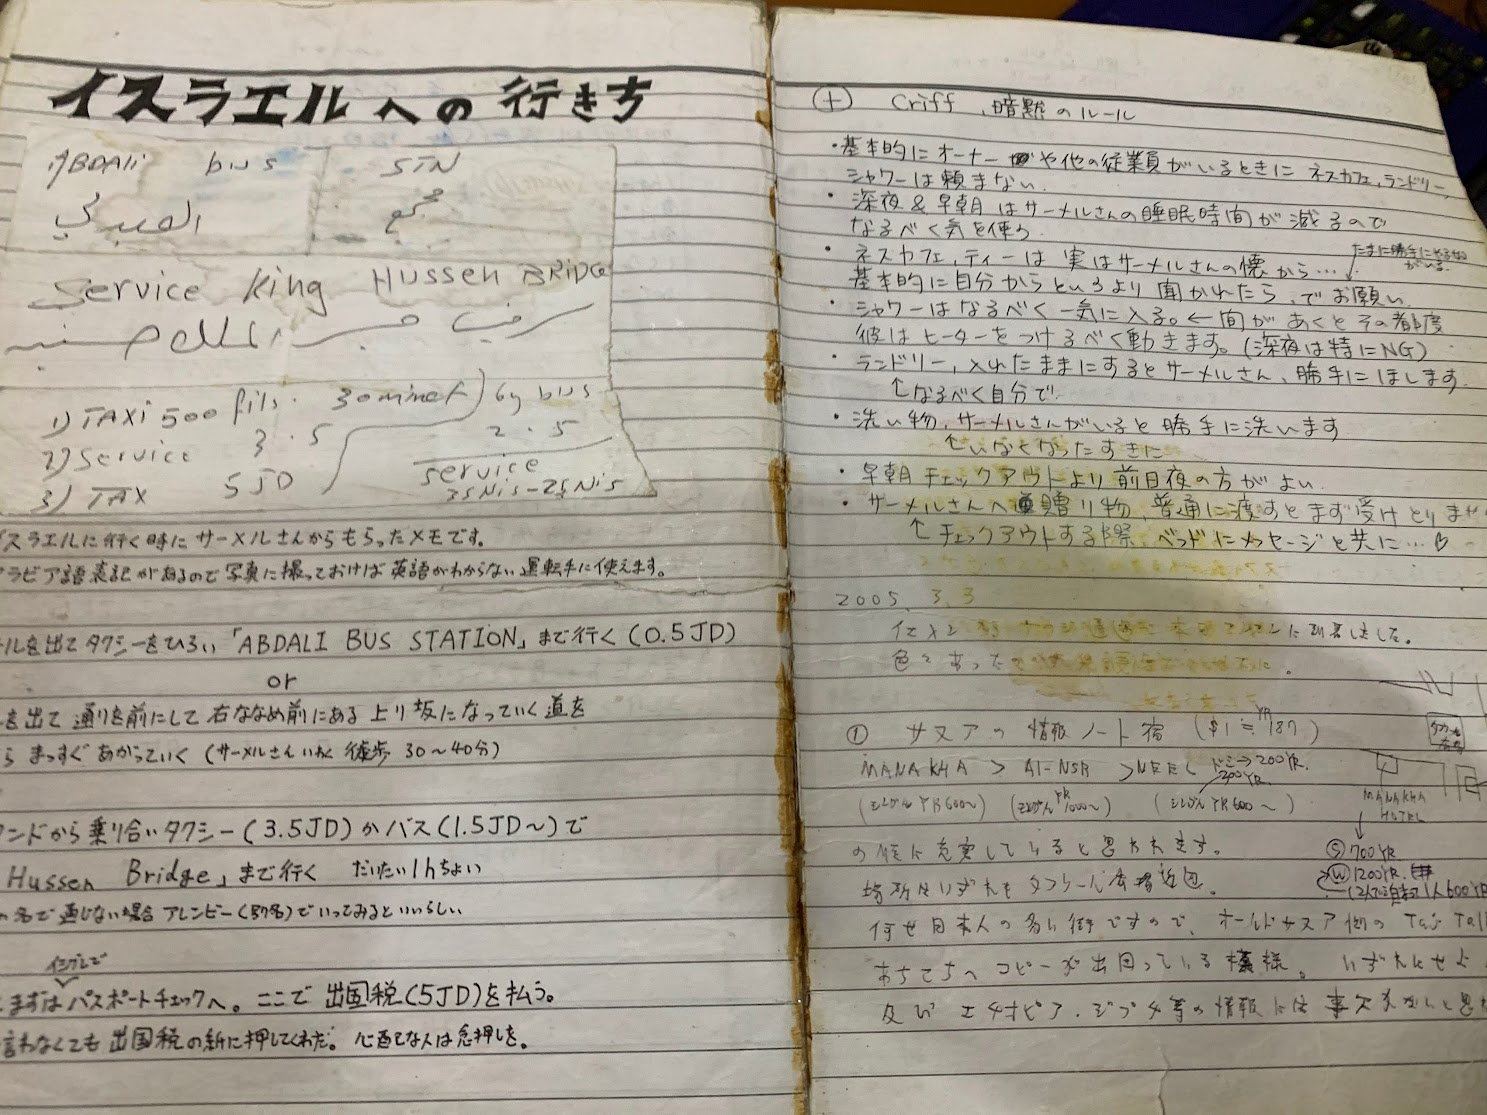 イスラエルへの行き方
ABDALi bus STN
العبدلي مجمع
Service King HUSSEN BRiDGE
1) TAXi 500 fils. 30minet
2) Service 3.5
3) TAX 5JD
by bus
2.5
service
スラエルに行く時にサーメルさんからもらったメモです。
ラビア語表記があるので写真に撮っておけば英語がわからない運転手に使えます。
ルを出てタクシーをひろい「ABDALI BUS STATION」まで行く(0.5JD)
or
を出て通りを前にして右ななめ前にある上り坂になっていく道を
ら まっすぐあがっていく(サーメルさんいわく徒歩30~40分)
ンドから乗り合いタクシー(3.5JD)かバス(1.5JD~)で
Hussen Bridge」まで行く だいたい1hちょい
の名で通じない場合アレンビー(別名)でいってみるといいらしい
まずはパスポートチェックへ。ここで出国税(5JD)を払う。
言わなくても出国税の紙に押してくれた。心配な人は念押しを。
(+) Criff、暗黙のルール
・基本的にオーナーや他の従業員がいるときにネスカフェ,ランドリー,
シャワーは頼まない.
・深夜&早朝はサーメルさんの睡眠時間が減るので
なるべく気を使う
・ネスカフェ,ティーは実はサーメルさんの懐から…
たまに勝手にやる
がいる.
基本的に自分からというより聞かれたら、でお願い.
・シャワーはなるべく一気に入る。←間があくとその都度
彼はヒーターをつけるべく動きます。(深夜は特にNG)
・ランドリー,入れたままにするとサーメルさん、勝手にほします.
↑なるべく自分で.
・洗い物,サーメルさんがいると勝手に洗います
↑いなくなったすきに
・早朝チェックアウトより前日夜の方がよい.
・サーメルさんへ贈り物,普通に渡すとまず受けとりませ
↑チェックアウトする際、ベッドにメッセージと共に…♡
2005. 3. 3
に到着しました。
色々あった
① サヌアの情報ノート宿 ($1≒187)
YR
MANAKHA > Al-NSR >
ドミ→200YR.
(シングルYR600~) (シングル YR1000~) (シングルYR600~)
MANAKHA
HOTEL
の順に充実していると思われます。
Ⓢ700YR.
場所はいずれもタハリール広場近辺。
Ⓦ1200YR.
何せ日本人の多い街ですので、オールドサヌア側のTaj Tal
あちこちへコピーが出回っている模様。いずれにせよ
及びエチオピア・ジブチ等の情報には事欠かないと思